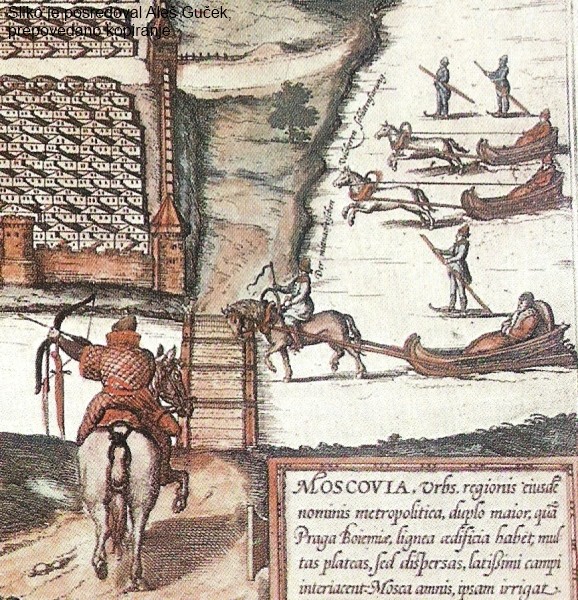 Sliko je posredoval Aleš Guček,
prepovedano kopiranje.
MOSCOVIA. Vrbs, regionis eiusdē
nominis metropolitica, duplo maior, quā
Praga Boiemiæ, lignea ædificia habet, mul
tas plateas, sed dispersas, latißimi campi
interiacent. Mosca amnis, ipsam irrigat.